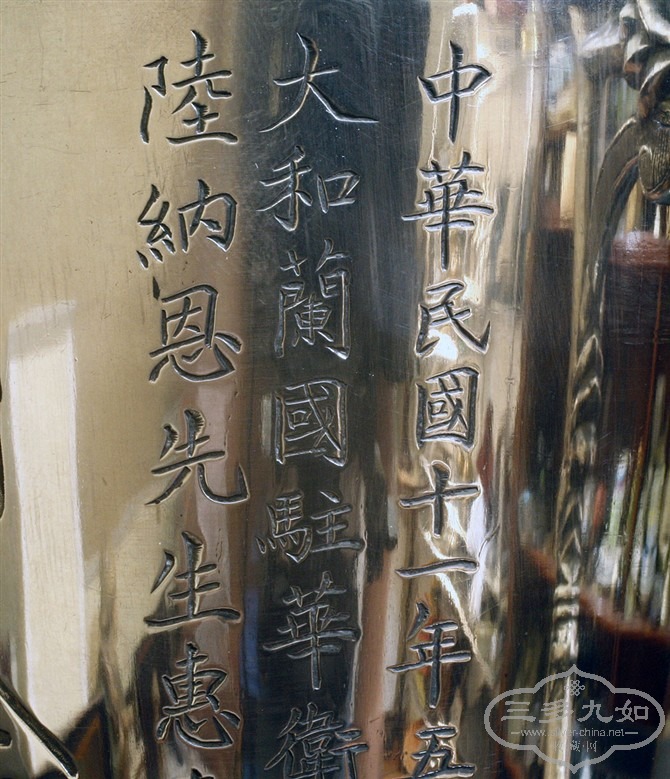 中華民國十一年五
大和蘭國駐華衛
陸納恩先生惠
三多九如
www.silver-china.net